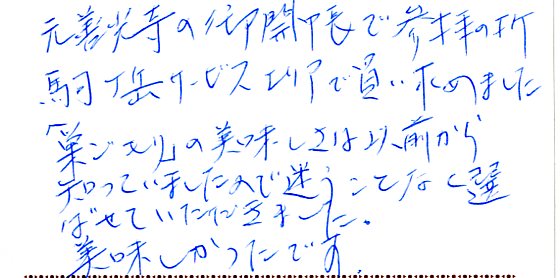 元善光寺の御開帳で参拝の折
駒ヶ岳サービスエリアで買い求めました
「巣ごもり」の美味しさは以前から
知っていましたので迷うことなく選
ばせていただきました。
美味しかったです。